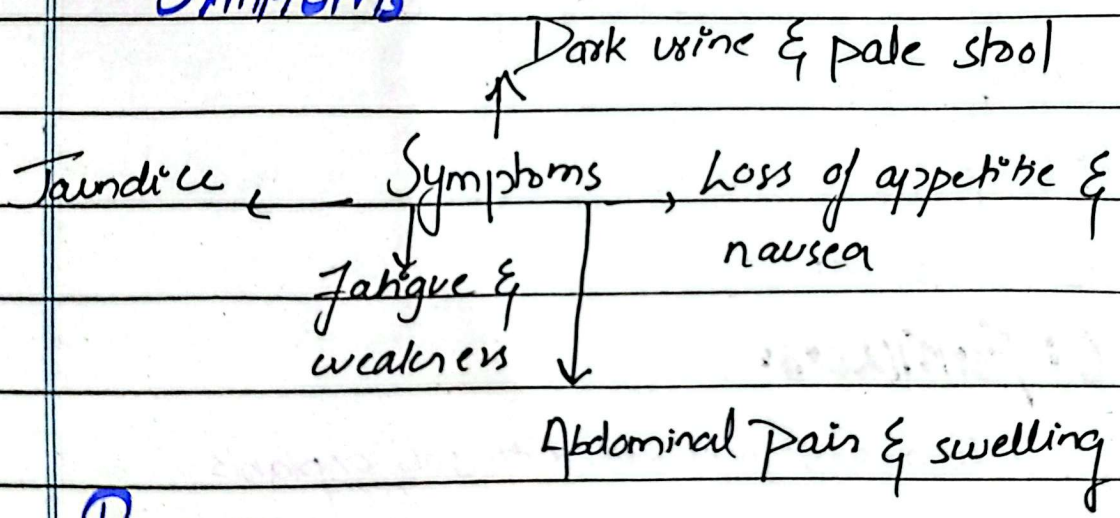 Symptoms
Dark urine & pale stool
Jaundice ← Symptoms → Loss of appetitie &
nausea
Fatigue &
weakness
Abdominal Pain & swelling